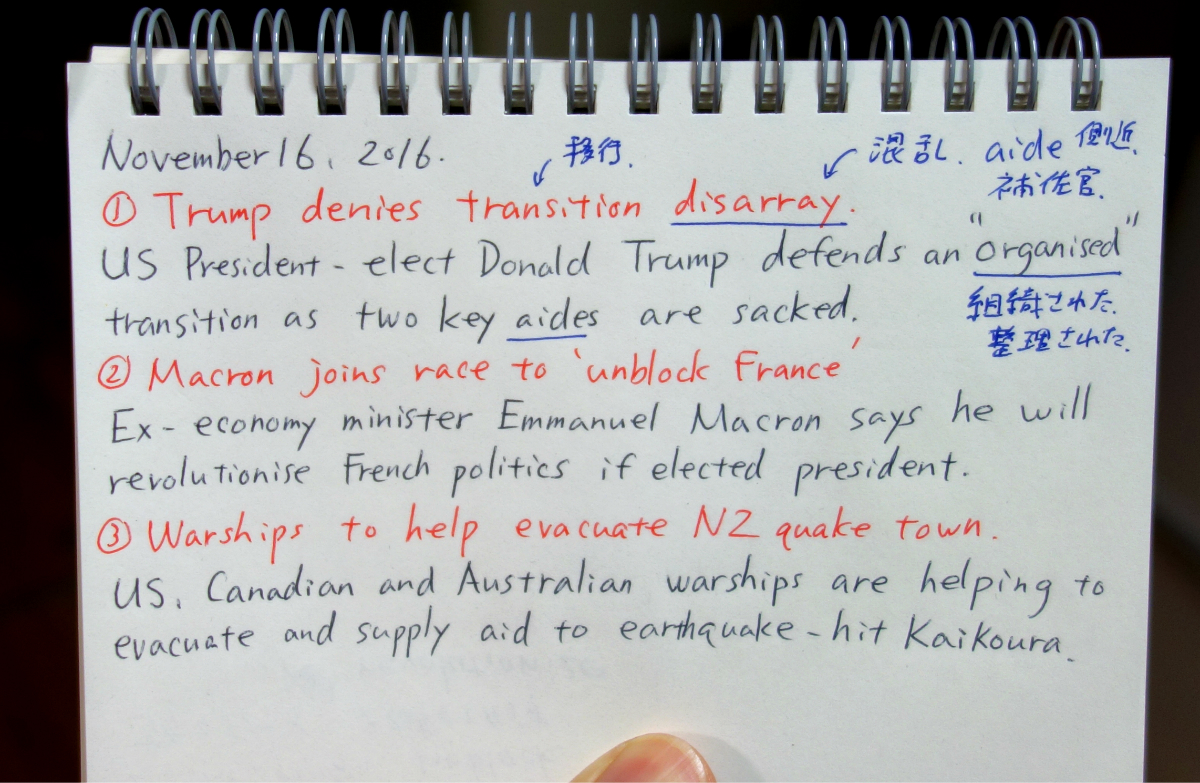 November 16, 2016.
移行.
混乱.
aide 側近.
補佐官.
① Trump denies transition disarray.
US President-elect Donald Trump defends an "organised"
組織された.
整理された.
transition as two key aides are sacked.
② Macron joins race to 'unblock France'
Ex-economy minister Emmanuel Macron says he will
revolutionise French politics if elected president.
③ Warships to help evacuate NZ quake town.
US, Canadian and Australian warships are helping to
evacuate and supply aid to earthquake-hit Kaikoura.